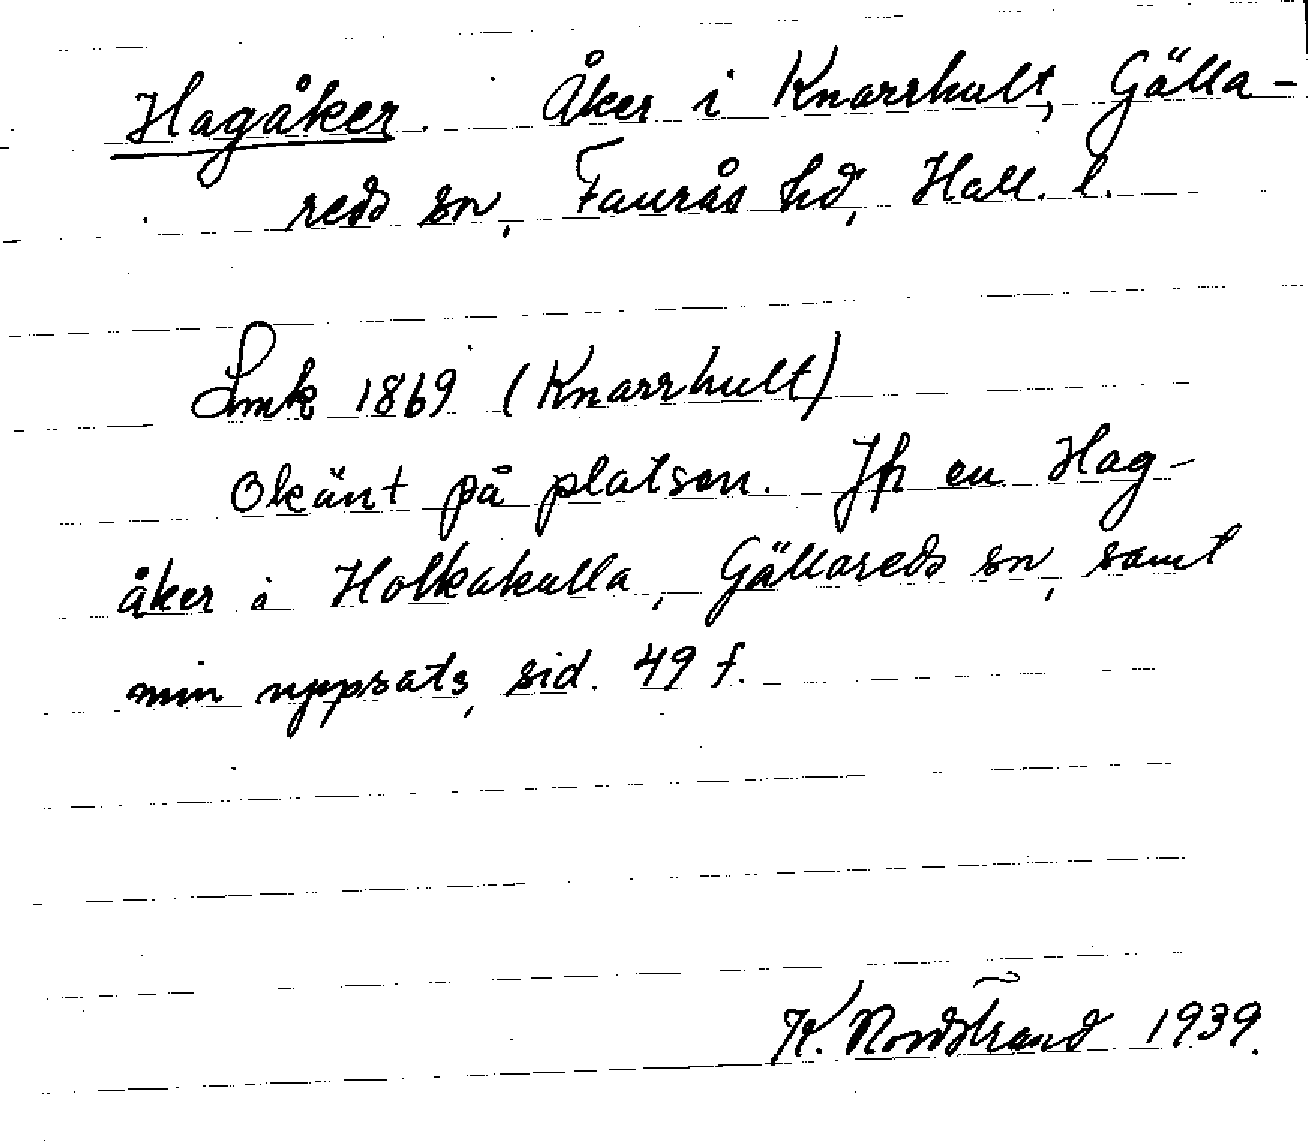 Hagåker. Åker i Knarrhult, Gälla-
reds sn, Faurås hd, Hall. l.
Lmk 1869 (Knarrhult)
Okänt på platsen. Jfr en Hag-
åker i Holkakulla, Gällareds sn, samt
min uppsats, sid. 49 f.
K. Nordstrand 1939.